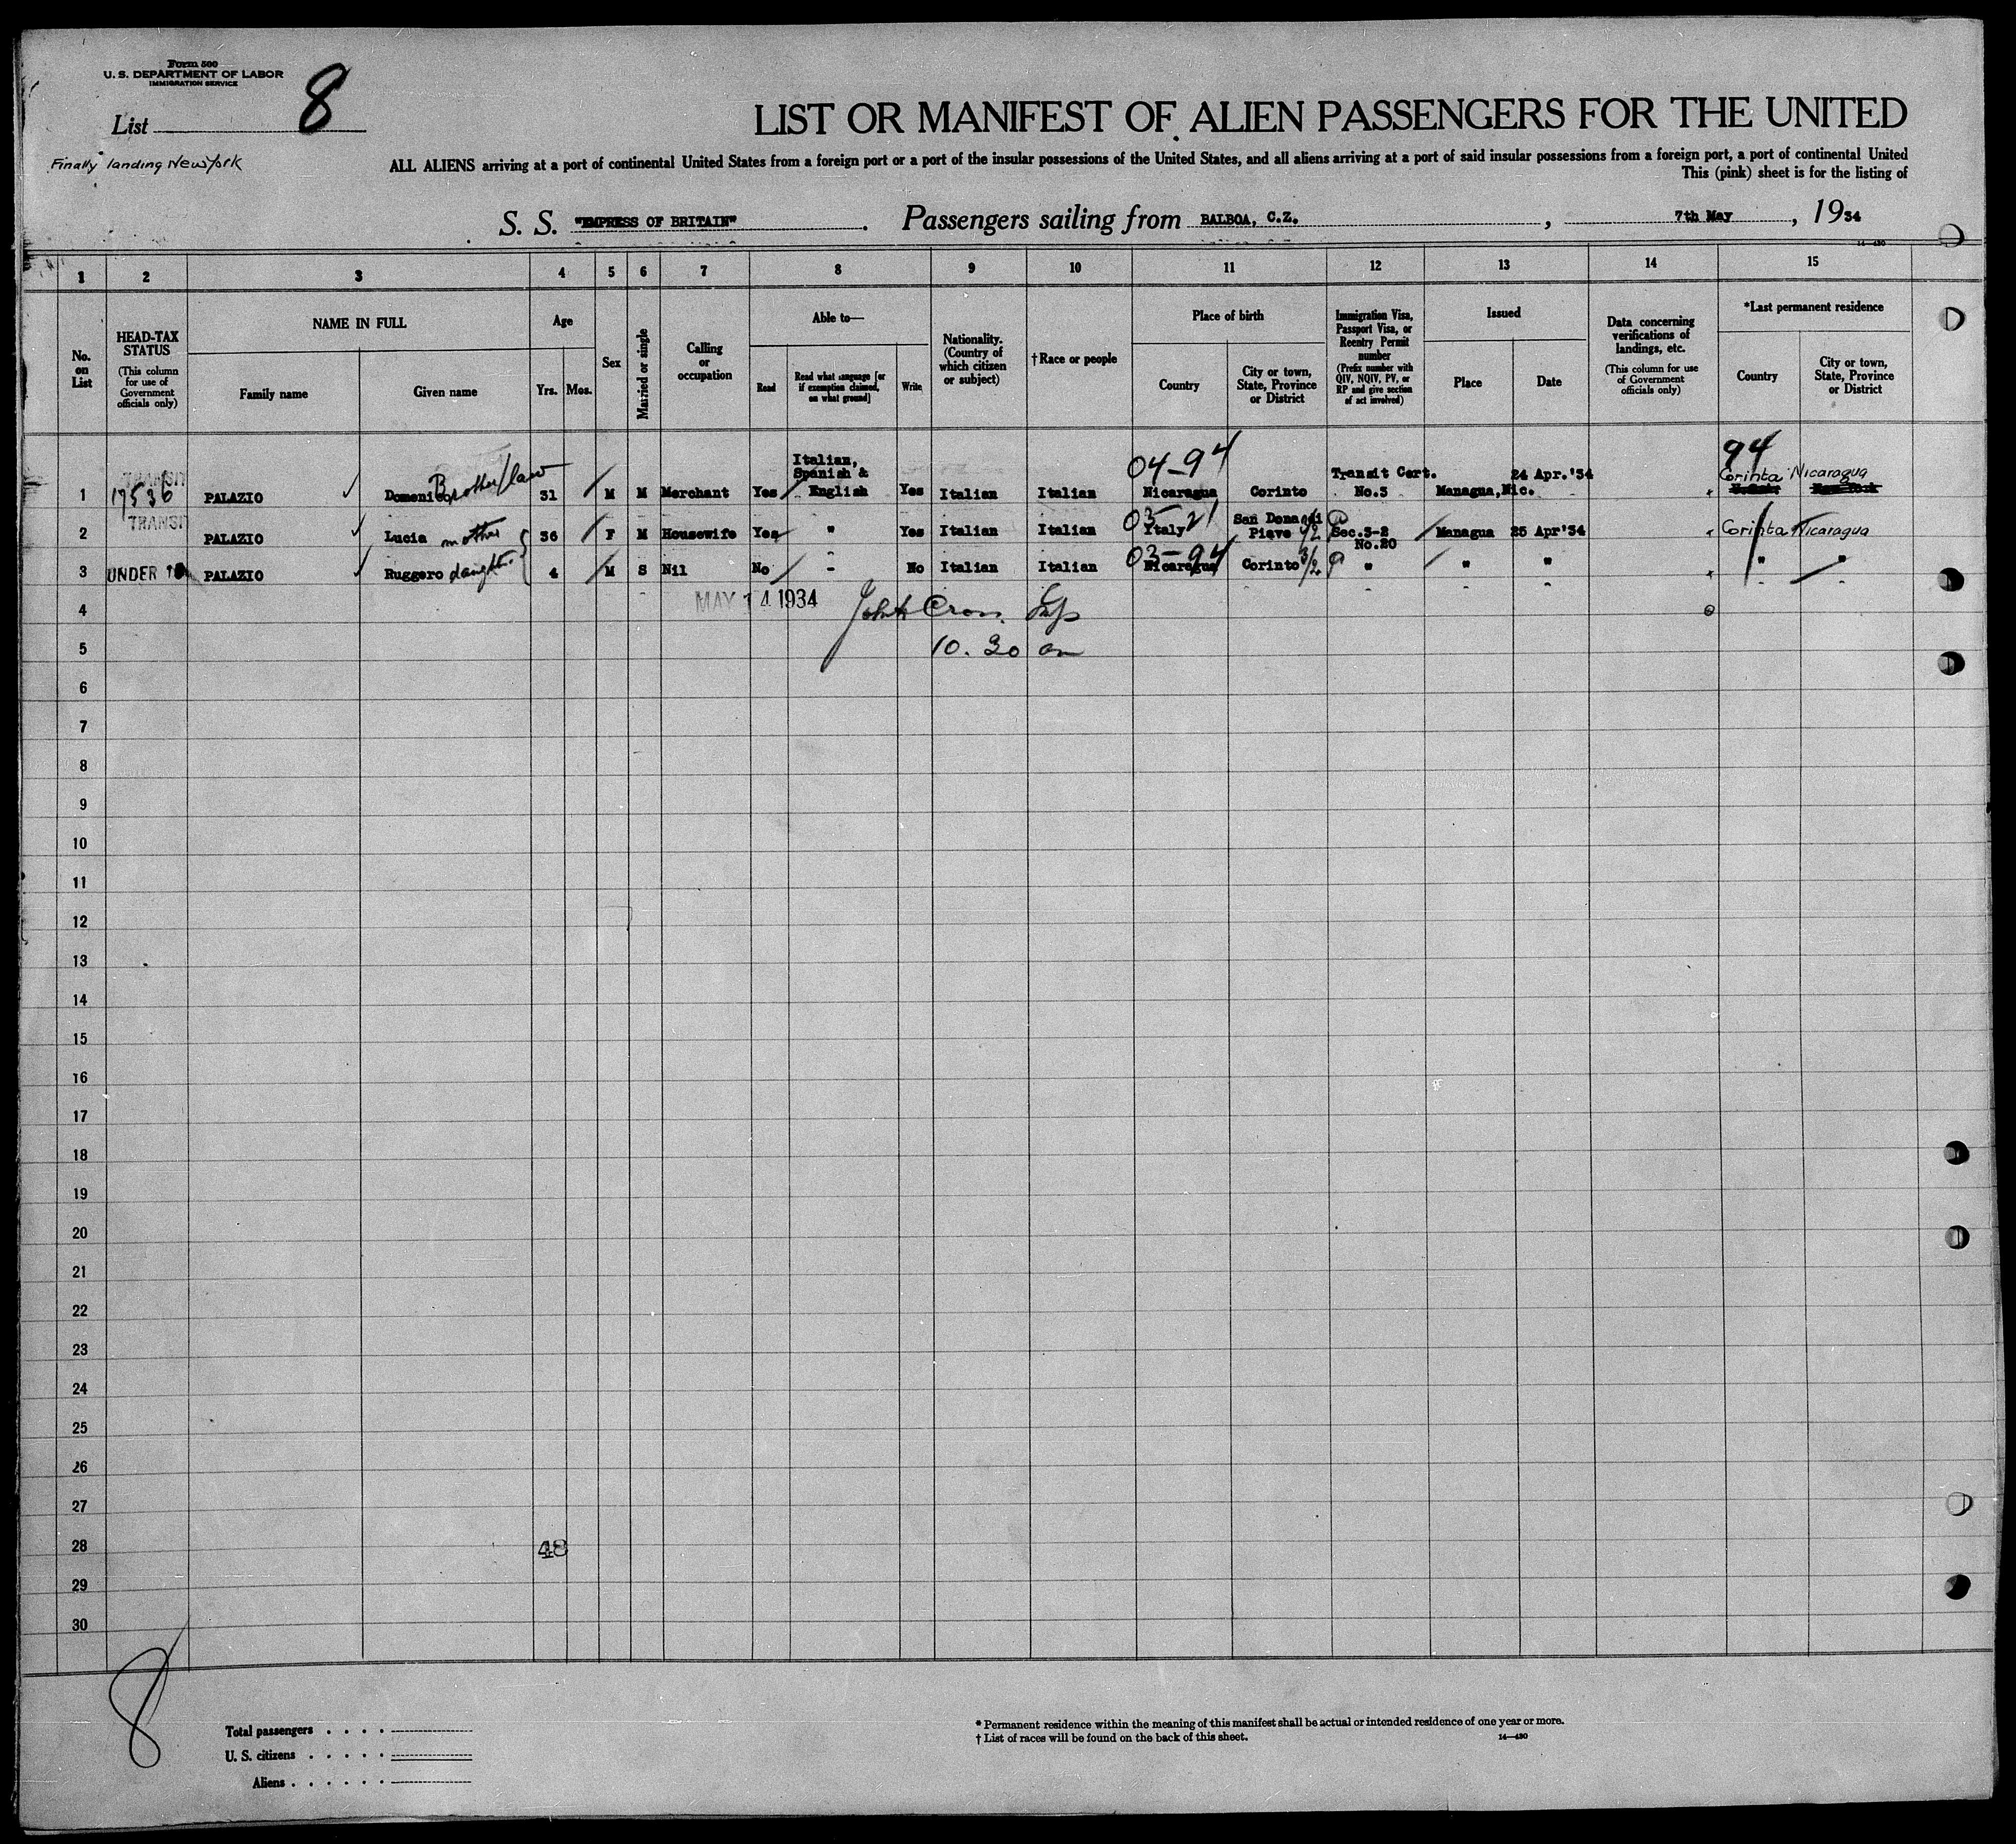 Form 500
U. S. DEPARTMENT OF LABOR
IMMIGRATION SERVICE
List 8
Finally landing New York
LIST OR MANIFEST OF ALIEN PASSENGERS FOR THE UNITED
ALL ALIENS arriving at a port of continental United States from a foreign port or a port of the insular possessions of the United States, and all aliens arriving at a port of said insular possessions from a foreign port, a port of continental United
This (pink) sheet is for the listing of
S. S. "EMPRESS OF BRITAIN" . Passengers sailing from BALBOA, C.Z. , 7th May , 1934
14-430
1 2 3 4 5 6 7 8 9 10 11 12 13 14 15
No. on List
HEAD-TAX STATUS
(This column for use of Government officials only)
NAME IN FULL
Family name Given name
Age
Yrs. Mos.
Sex
Married or single
Calling or occupation
Able to—
Read
Read what language [or if exemption claimed, on what ground]
Write
Nationality. (Country of which citizen or subject)
†Race or people
Place of birth
Country
City or town, State, Province or District
Immigration Visa, Passport Visa, or Reentry Permit number
(Prefix number with QIV, NQIV, PV, or RP and give section of act involved)
Issued
Place Date
Data concerning verifications of landings, etc.
(This column for use of Government officials only)
*Last permanent residence
Country
City or town, State, Province or District
TRANSIT
1 17536 PALAZIO Domenico Brother/law 31 M M Merchant Yes Italian, Spanish & English Yes Italian Italian 04-94 Nicaragua Corinto Transit Cert. No.3 Managua,Nic. 24 Apr.'34 94 Corinta Nicaragua
TRANSIT
2 PALAZIO Lucia mother 36 F M Housewife Yes " Yes Italian Italian 03-21 Italy San Dona di Piave Sec.3-2 No.20 Managua 25 Apr'34 Corinta Nicaragua
3 UNDER 16 PALAZIO Ruggero daught. 4 M S Nil No - No Italian Italian 03-94 Nicaragua Corinto " " " " "
4 MAY 14 1934 John Cron. Insp
5 10. 30 am
6
7
8
9
10
11
12
13
14
15
16
17
18
19
20
21
22
23
24
25
26
27
28 48
29
30
8
Total passengers . . . .
U. S. citizens . . . . .
Aliens . . . . . .
* Permanent residence within the meaning of this manifest shall be actual or intended residence of one year or more.
† List of races will be found on the back of this sheet. 14—430